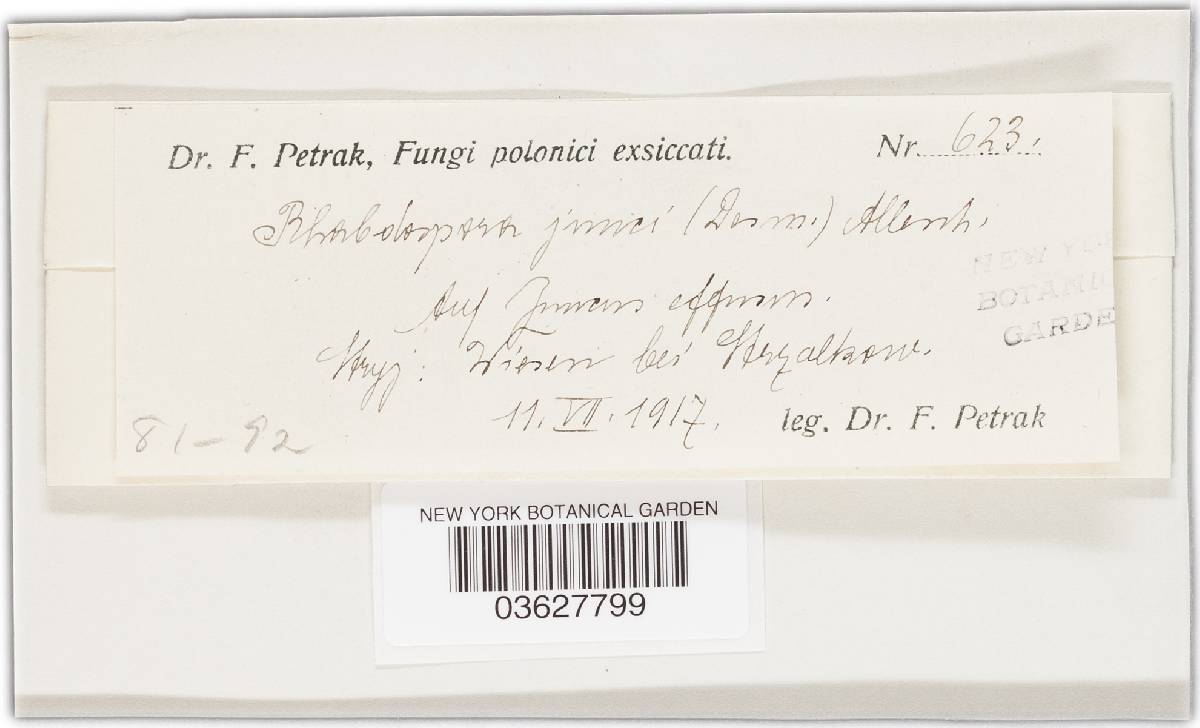 Dr. F. Petrak, Fungi polonici exsiccati. Nr. 623.
Rhabdospora junci (Desm.) Allesch.
Auf Juncus effusus.
Stryj: Wiesen bei Strzalkow.
11. VII. 1917. leg. Dr. F. Petrak
81-92
NEW YO
BOTANIC
GARDE
NEW YORK BOTANICAL GARDEN
03627799